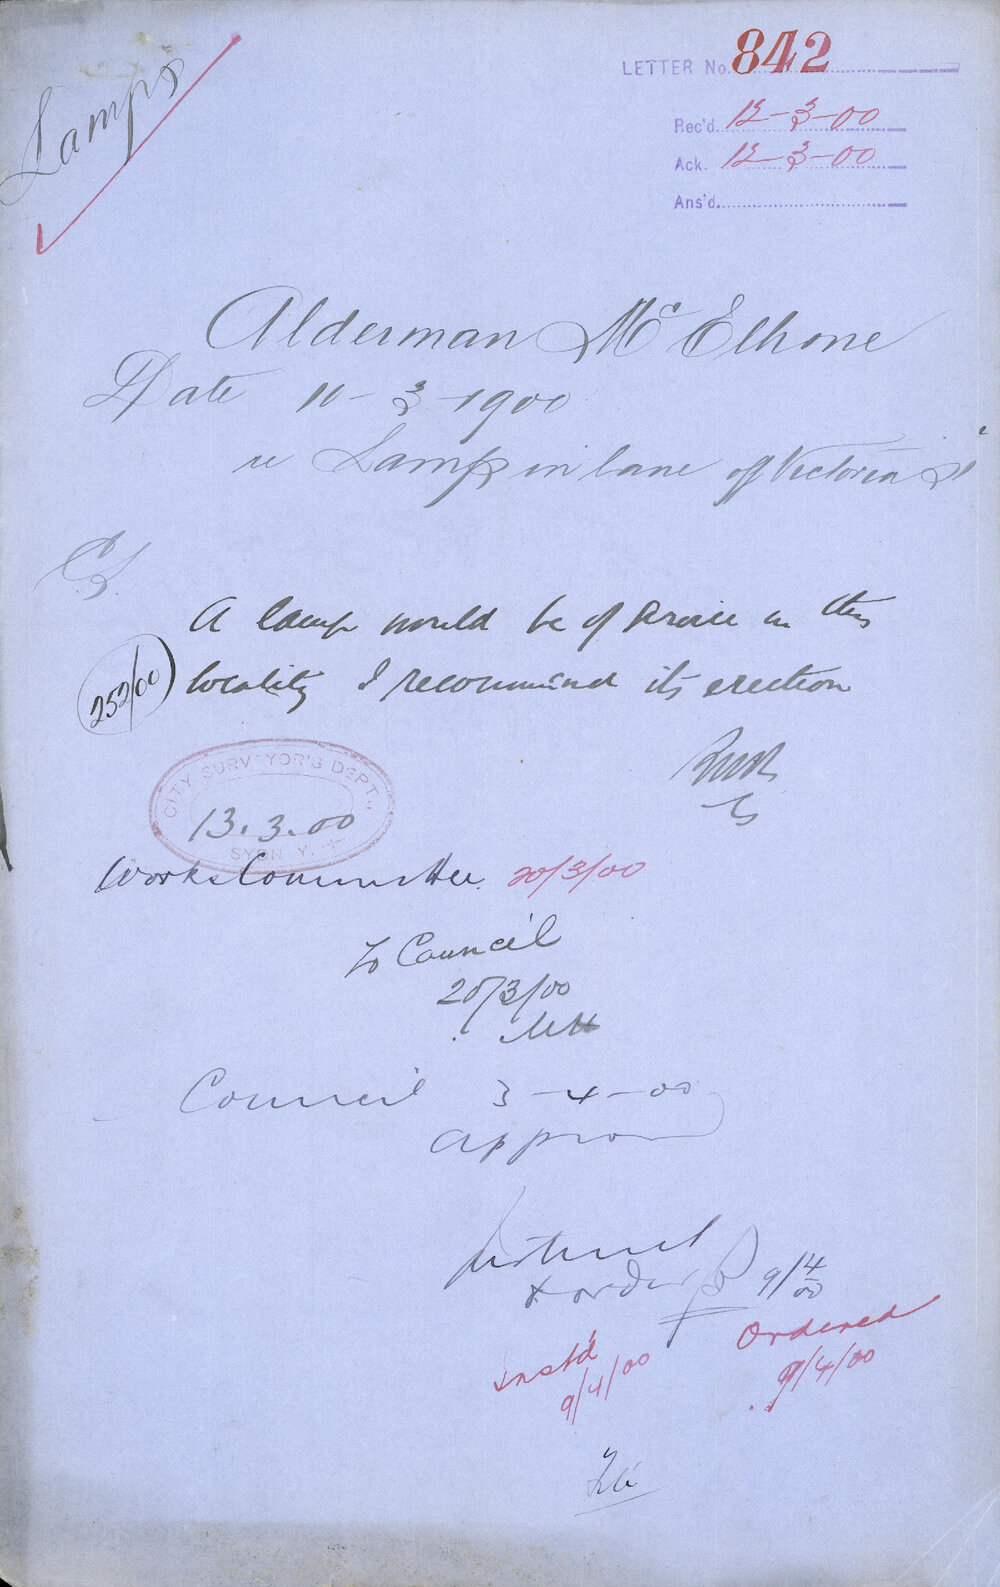 Lamps
LETTER No. 842
Rec'd. 12-3-00
Ack. 12-3-00
Ans'd.
Alderman McElhone
Date 10-3-1900
re Lamp in lane off Victoria St
C.S.
A lamp would be of service in this
252/00
locality I recommend its erection
CITY SURVEYOR'S DEPT.
13.3.00
SYDNEY.
Works Committee 20/3/00
To Council
20/3/00
Council 3-4-00
approved
Instruct
& order 9/4/00
Inst'd
9/4/00
Ordered
9/4/00